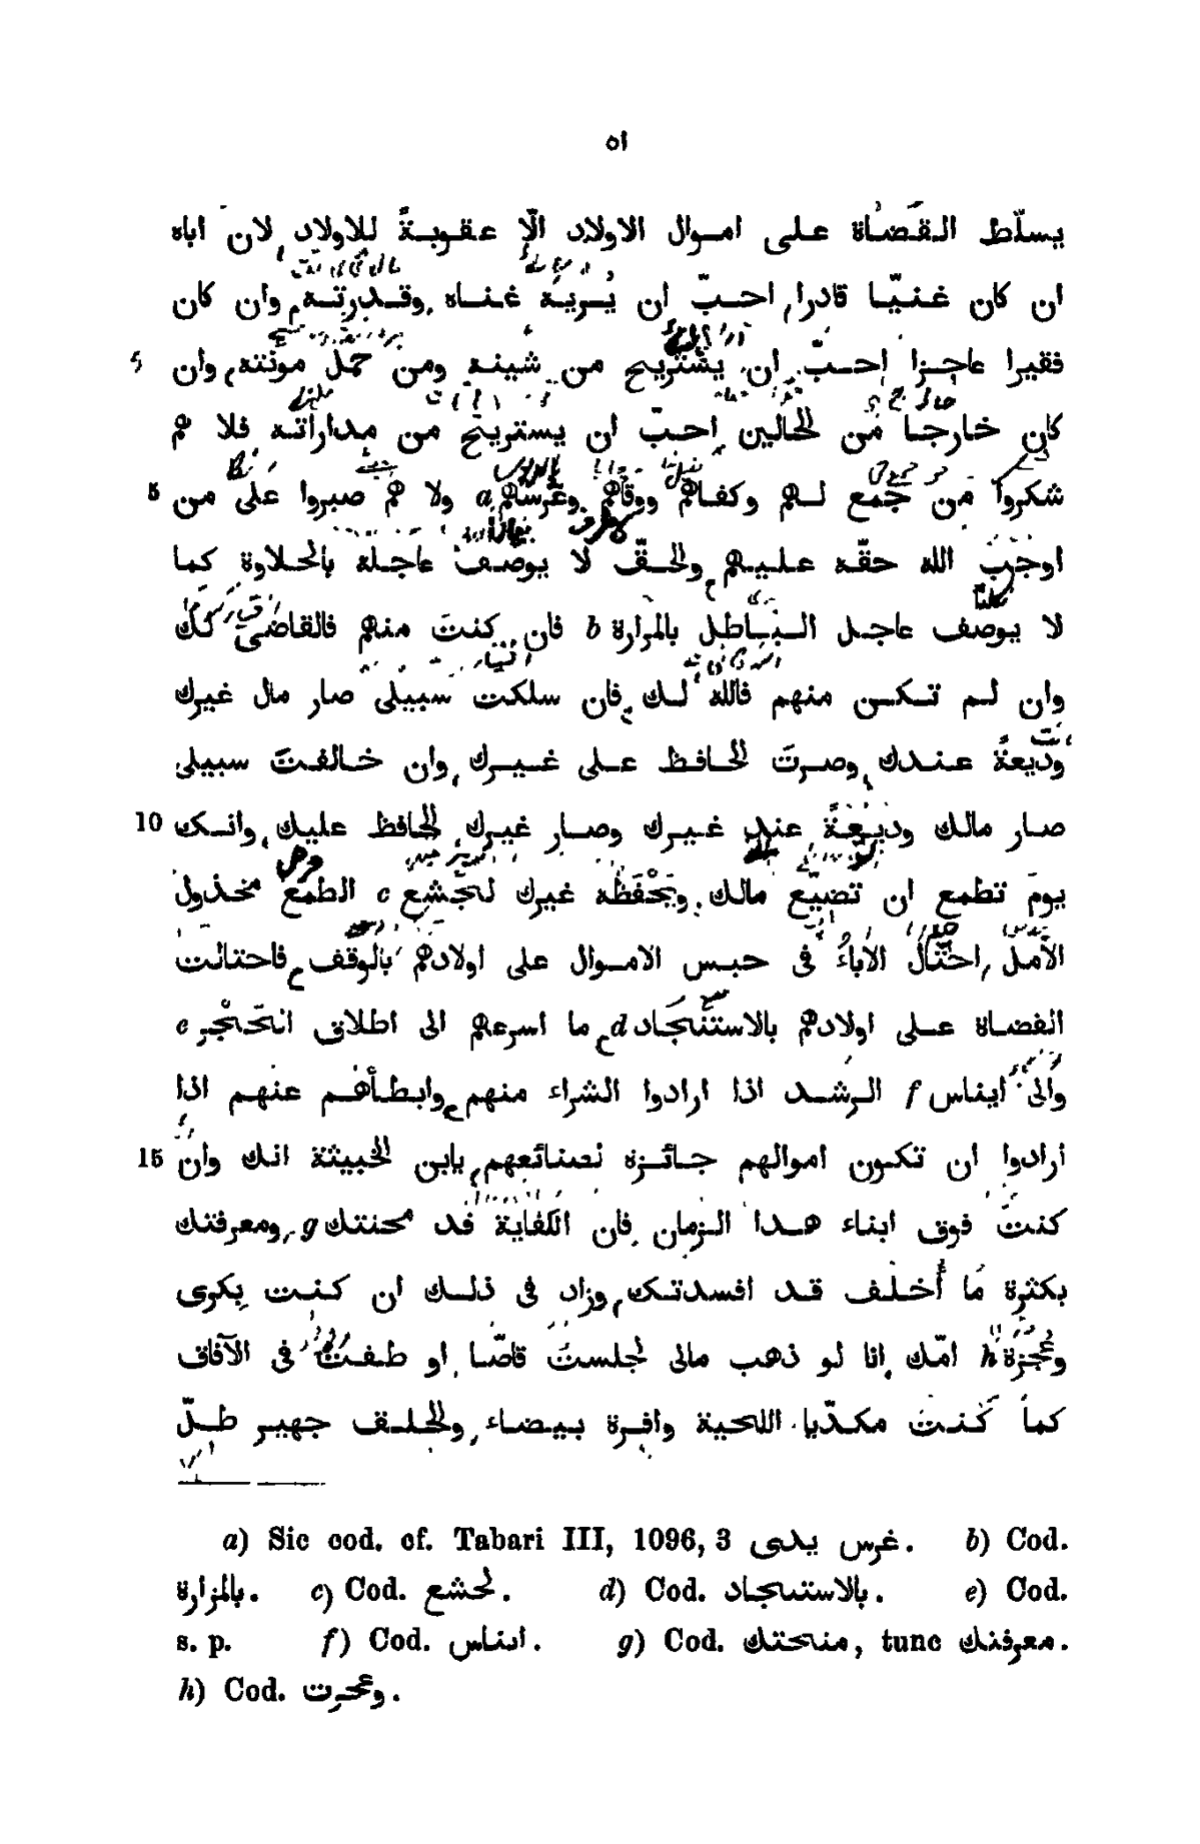 ٥١
يسلّط القضاة على اموال الاولاد الّا عقوبةً للاولاد لان اباه
ان كان غنيّا قادرا احبّ ان يُريَه غناه وقدرته وان كان
فقيرا عاجزا احبّ ان يستريح من شينه ومن حمل مونته وان
كان خارجا من الحالين احبّ ان يستريح من مداراته فلا هم
5 شكروا من جمع لهم وكفاهم ووقاهم وغرسهم a ولا هم صبروا على من
اوجب الله حقّه عليهم والحقّ لا يوصف عاجله بالحلاوة كما
لا يوصف عاجل الباطل بالمرارة b فان كنتَ منهم فالقاضى لك
وان لم تكن منهم فالله لك فان سلكت سبيلى صار مال غيرك
وديعةً عندك وصرتَ الحافظ على غيرك وان خالفتَ سبيلى
10 صار مالك وديعةً عند غيرك وصار غيرك الحافظ عليك وانك
يوم تطمع ان تضيّع مالك ويحفظه غيرك لجشع c الطمع مخذول
الامل احتال الآباءُ فى حبس الاموال على اولادهم بالوقف فاحتالت
القضاة على اولادهم بالاستحجاد d ما اسرعهم الى اطلاق الحَجْر e
والى ايناس f الرشد اذا ارادوا الشراء منهم وابطأهم عنهم اذا
15 ارادوا ان تكون اموالهم جائزة لصنائعهم يابن الخبيثة انك وان
كنتَ فوق ابناء هذا الزمان فان الكفاية قد محنتك g ومعرفتك
بكثرة ما أُخلف قد افسدتك وزاد فى ذلك ان كنت بكرى
وعجزة h امّك انا لو ذهب مالى لجلستُ قاصّا او طفتُ فى الآفاق
كما كنتُ مكدّيا اللحية وافرة بيضاء والحلق جهير طلّ
a) Sic cod. cf. Tabari III, 1096, 3 غرس يدى. b) Cod.
بالمزارة. c) Cod. لحشع. d) Cod. بالاستىحاد. e) Cod.
s. p. f) Cod. اىناس. g) Cod. منحتك, tunc معرفتك.
h) Cod. وعجرت.